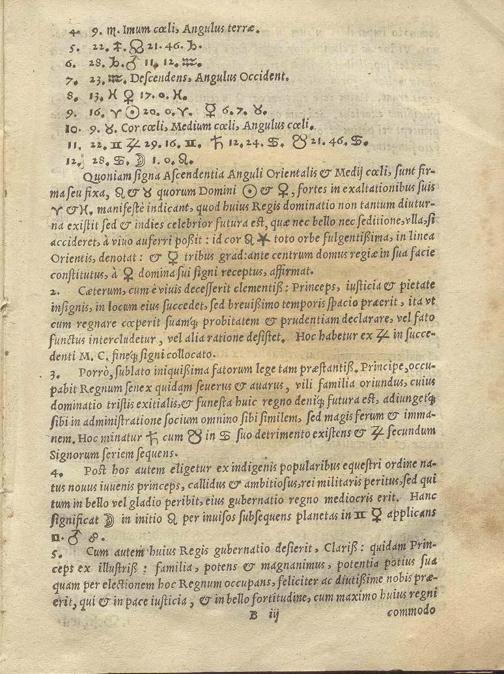 4. 9. ♏. Imum cœli, Angulus terræ.
5. 22. ♐. ☋ 21. 46. ♑.
6. 28. ♑. ♂ 11. 12. ♒.
7. 23. ♒. Descendens, Angulus Occident.
8. 13. ♓ ♀ 17. 0. ♓.
9. 16. ♈ ☉ 20. 0. ♈. ☿ 6. 7. ♉.
10. 9. ♉. Cor cœli, Medium cœli, Angulus cœli.
11. 22. ♊ ♃ 29. 16. ♊. ♄ 12. 24. ♋. ☋ 21. 46. ♋.
12. 28. ♋. ☽ 1. 0. ♌.
Quoniam signa Ascendentia Anguli Orientalis & Medij cœli, sunt fir-
ma seu fixa, ♌ & ♉ quorum Domini ☉ & ♀, fortes in exaltationibus suis
♈ & ♓. manifestè indicant, quod huius Regis dominatio non tantum diutur-
na existit sed & indies celebrior futura est, quæ nec bello nec seditione, vlla, si
accideret, à viuo auferri poßit: id cor ♌ toto orbe fulgentißima, in linea
Orientis, denotat: & ☿ tribus grad: ante centrum domus regiæ in sua facie
constitutus, à ♀ domina sui signi receptus, affirmat.
2. Cæterum, cum è viuis decesserit clementiß: Princeps, iusticia & pietate
insignis, in locum eius succedet, sed breuißimo temporis spacio præerit, ita vt
cum regnare cœperit suamq; probitatem & prudentiam declarare, vel fato
functus intercludetur, vel alia ratione desistet. Hoc habetur ex ♃ in succe-
denti M. C. fineq; signi collocato.
3. Porrò, sublato iniquißima fatorum lege tam præstantiß. Principe, occu-
pabit Regnum senex quidam seuerus & auarus, vili familia oriundus, cuius
dominatio tristis exitialis, & funesta huic regno deniq; futura est, adiungetq;
sibi in administratione socium omnino sibi similem, sed magis ferum & imma-
nem. Hoc minatur ♄ cum ☋ in ♋ suo detrimento existens & ♃ secundum
Signorum seriem sequens.
4. Post hos autem eligetur ex indigenis popularibus equestri ordine na-
tus nouus iuuenis princeps, callidus & ambitiosus, rei militaris peritus, sed qui
tum in bello vel gladio peribit, eius gubernatio regno mediocris erit. Hanc
significat ☽ in initio ♌ per inuisos subsequens planetas in ♊ ☿ applicans
□. ♂ ☍.
5. Cum autem huius Regis gubernatio desierit, Clariß: quidam Prin-
ceps ex illustriß: familia, potens & magnanimus, potentia potius sua
quam per electionem hoc Regnum occupans, feliciter ac diutißime nobis præ-
erit, qui & in pace iusticia, & in bello fortitudine, cum maximo huius regni
B iij commodo